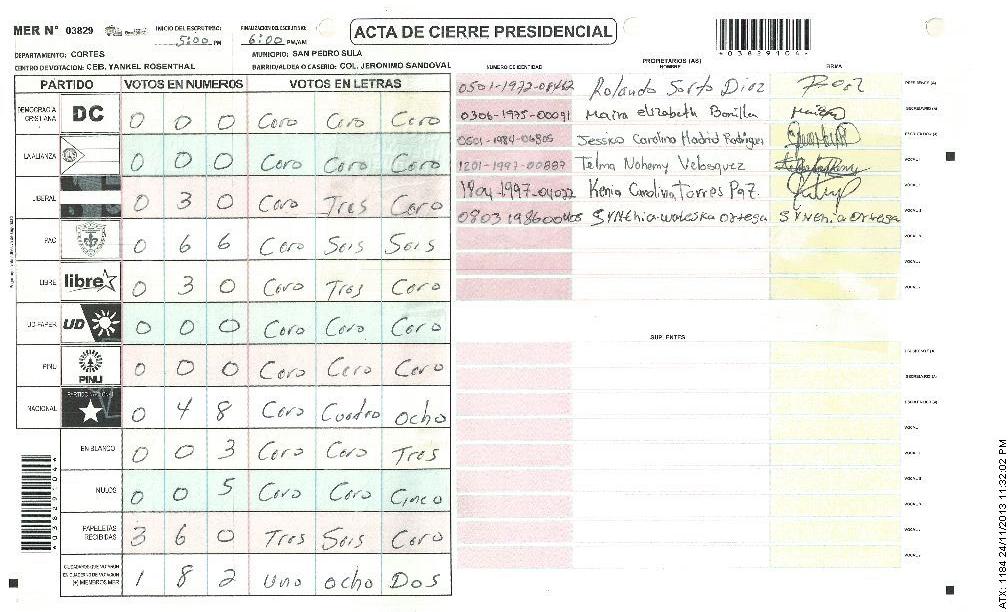 MER N° 03829
INICIO DEL ESCRUTINIO: 5:00 PM
FINALIZACION DEL ESCRUTINIO: 6:00 PM/AM
ACTA DE CIERRE PRESIDENCIAL
*03829104*
DEPARTAMENTO: CORTES
MUNICIPIO: SAN PEDRO SULA
CENTRO DE VOTACION: CEB. YANKEL ROSENTHAL
BARRIO/ALDEA O CASERIO: COL. JERONIMO SANDOVAL
PARTIDO VOTOS EN NUMEROS VOTOS EN LETRAS
DEMOCRACIA CRISTIANA DC 0 0 0 Cero Cero Cero
LA ALIANZA 0 0 0 Cero Cero Cero
LIBERAL 0 3 0 Cero Tres Cero
PAC 0 6 6 Cero Seis Seis
LIBRE libre 0 3 0 Cero Tres Cero
UD-FAPER UD 0 0 0 Cero Cero Cero
PINU PINU 0 0 0 Cero Cero Cero
NACIONAL 0 4 8 Cero Cuatro Ocho
EN BLANCO 0 0 3 Cero Cero Tres
NULOS 0 0 5 Cero Cero Cinco
PAPELETAS RECIBIDAS 3 6 0 Tres Seis Cero
CIUDADANOS QUE VOTARON EN CUADERNO DE VOTACION (+) MIEMBROS MER 1 8 2 Uno Ocho Dos
*03829104*
PROPIETARIOS (AS)
NUMERO DE IDENTIDAD NOMBRE FIRMA
0501-1972-08462 Rolando Sorto Diaz PRESIDENTE (A)
0306-1975-00091 Maira elizabeth Bonilla SECRETARIO (A)
0501-1984-06805 Jessica Carolina Madrid Rodriguez ESCRUTADOR (A)
1201-1997-00887 Telma Nohemy Velasquez VOCAL I
Kenia Carolina Torres Paz. VOCAL II
Synthia waleska ortega Synthia ortega
SUPLENTES
ATX: 1184 24/11/2013 11:32:02 PM